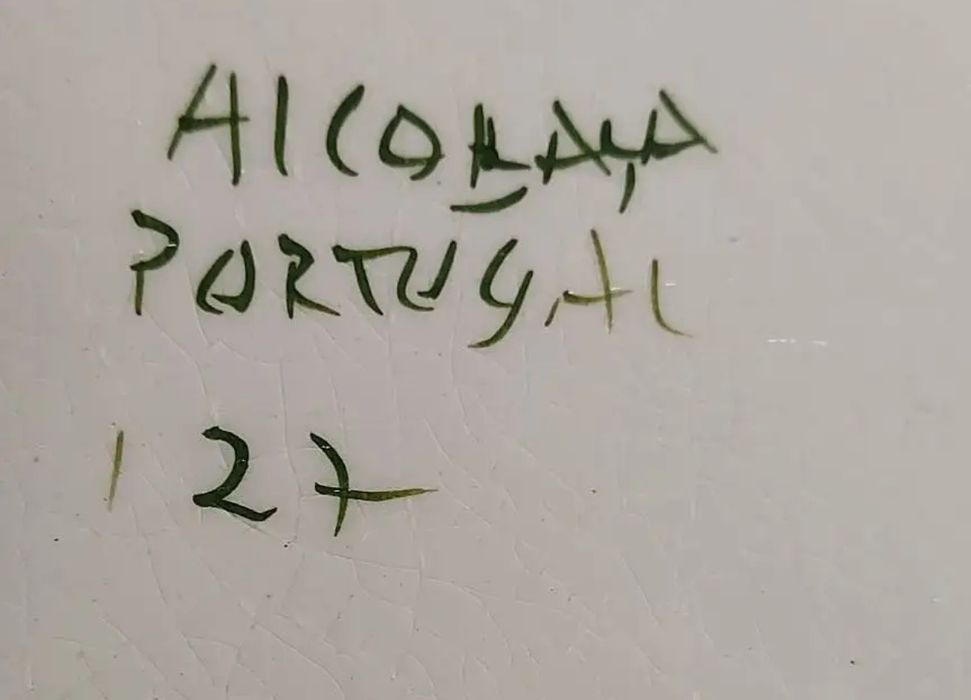 AlCOBAÇA
PORTUGAL
127